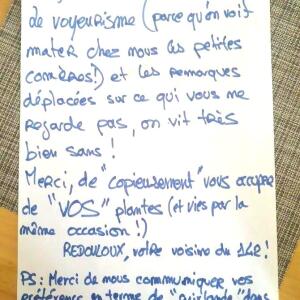 de voyeurisme (parce qu'on voit
mater chez nous les petites
comères!) et les remarques
déplacées sur ce qui vous me
regarde pas, on vit très
bien sans !
Merci, de "copieusement" vous occuper
de "VOS" plantes (et vies par la
même occasion !)
REDOULOUX, votre voisine du 142 !
PS : Merci de nous communiquer vos
préférence en terme de "guirlande" dans